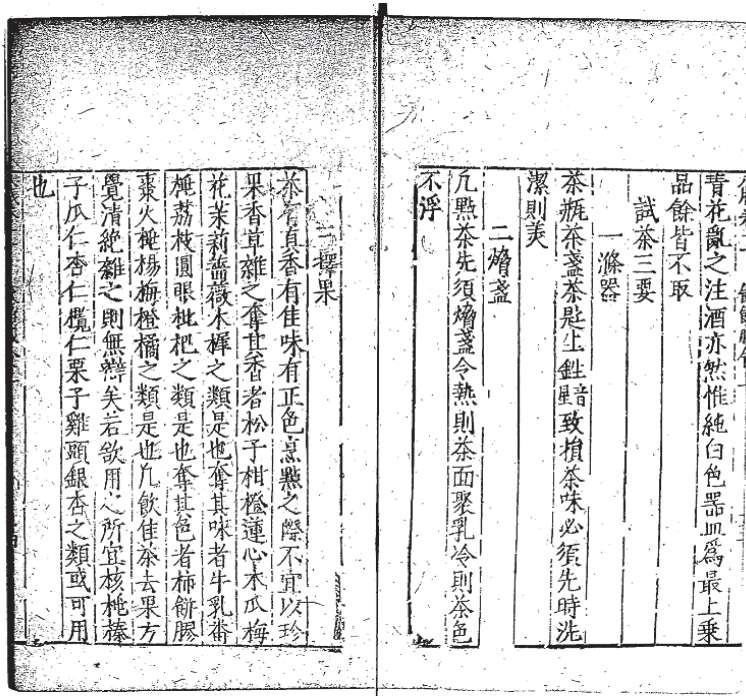 青花亂之注酒亦然惟純白色器皿爲最上乗
品餘皆不取
試茶三要
一滌器
茶瓶茶盞茶匙生鉎致損茶味必須先時洗
潔則美
二熁盞
凢㸃茶先須熁盞令熱則茶面聚乳冷則茶色
不浮
三擇果
茶有真香有佳味有正色烹㸃之際不宜以珍
果香草雜之奪其香者松子柑橙蓮心木瓜梅
花茉莉薔薇木樨之類是也奪其味者牛乳番
桃荔枝圓眼枇杷之類是也奪其色者柿餅膠
棗火桃楊梅橙橘之類是也凢飲佳茶去果方
覺清絶雜之則無辯矣若欲用之所宜核桃榛
子瓜仁杏仁欖仁栗子雞頭銀杏之類或可用
也